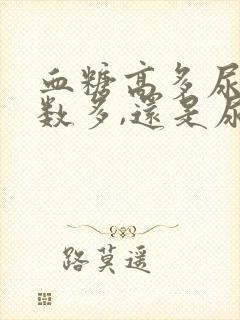 血糖高多尿
数多,還是尿
路莫遥